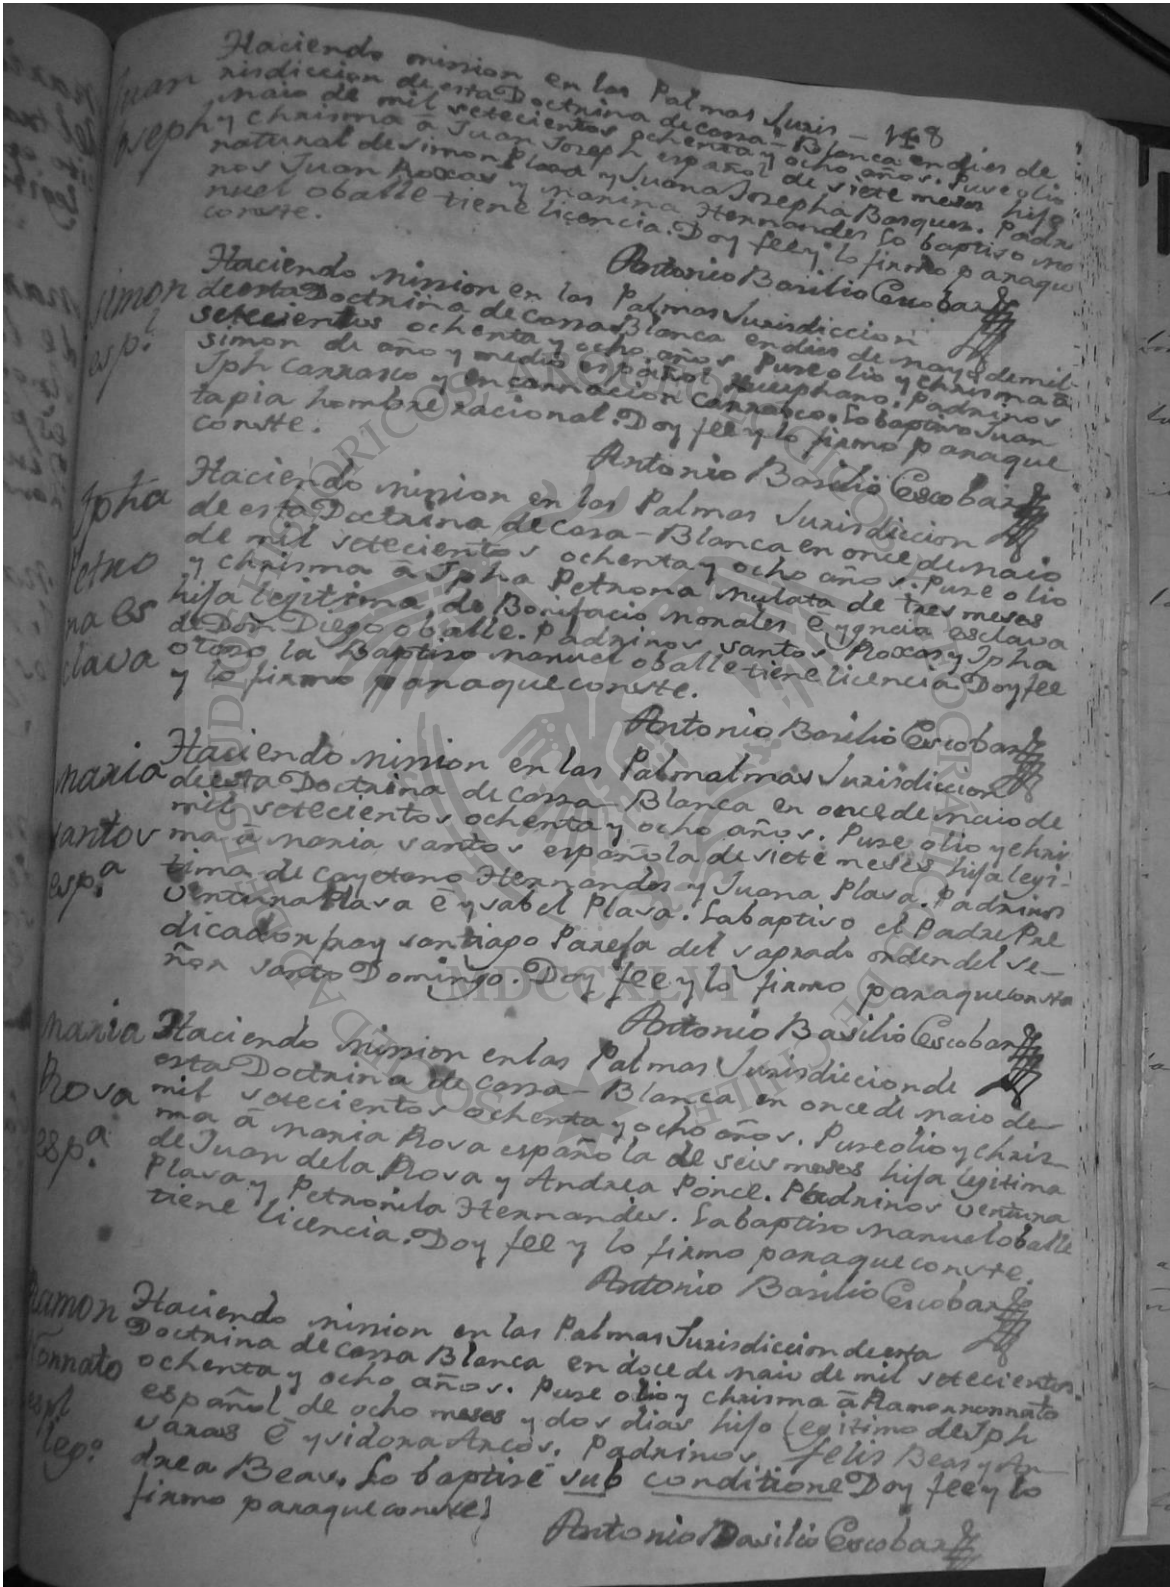 148
Juan
Joseph
Haciendo mission en las Palmas Juris-
risdiccion de esta Doctrina de cassa-Blanca en dies de
Maio de mil setecientos ochenta y ocho años. Puse olio
y chrisma â Juan Joseph español de siete meses hijo
natural de simon Plaza y Juana Josepha Basques. Padri
nos Juan Roxas y Marina Hernandes lo baptiso Ma
nuel oballe tiene licencia. Doy fee y lo firmo paraque
conste.
Antonio Basilio Escobar
simon
esp.l
Haciendo Mission en las Palmas Jurisdiccion
de esta Doctrina de cassa Blanca en dies de mayo de mil
setecientos ochenta y ocho años Puse olio y chrisma â
simon de año y medio español Huerphano. Padrinos
Jph carrasco y encarnacion carrasco. lo baptiso Juan
tapia hombre racional. Doy fee y lo firmo paraque
conste.
Antonio Basilio Escobar
Jpha
Petro
na es
clava
Haciendo mission en las Palmas Jurisdiccion
de esta Doctrina de casa-Blanca en once de Maio
de mil setecientos ochenta y ocho años. Puse olio
y chrisma â Jpha Petrona Mulata de tres meses
hija legitima de Bonifacio Morales ê ygncia esclava
de Don Diego oballe. Padrinos santos Roxas y Jpha
otaro la Baptiso Manuel oballe tiene licencia. Doy fee
y lo firmo paraque conste.
Antonio Basilio Escobar
Maria
santos
esp.a
Haciendo Mission en las Palmalmas Jurisdiccion
de esta Doctrina de cassa-Blanca en once de Maio de
mil setecientos ochenta y ocho años. Puse olio y chris
ma â Maria santos española de siete meses hija legi-
tima de Cayetano Hernandes y Juana Plasa. Padrinos
Ventura Plasa ê ysabel Plasa. la baptiso el Padre Pre
dicador fray santiago Pareja del sagrado orden del se-
ñor santo Domingo. Doy fee y lo firmo paraque conste
Antonio Basilio Escobar
Maria
Rosa
esp.a
Haciendo Mission en las Palmas Jurisdiccion de
esta Doctrina de cassa-Blanca en once de Maio de
mil setecientos ochenta y ocho años. Puse olio y chris-
ma â Maria Rosa española de seis meses hija legitima
de Juan de la Rosa y Andrea Ponce. Padrinos Ventura
Plasa y Petronila Hernandes. la baptiso Manuel oballe
tiene licencia. Doy fee y lo firmo paraque conste.
Antonio Basilio Escobar
Ramon
Nonnato
espl
leg.o
Haciendo mission en las Palmas Jurisdiccion de esta
Doctrina de cassa Blanca en doce de Maio de mil setecientos
ochenta y ocho años. Puse olio y chrisma â Ramon nonnato
español de ocho meses y dos dias hijo legitimo de Jph
varas ê ysidora Arcos. Padrinos felis Beas y An-
drea Beas. lo baptisê sub conditione Doy fee y lo
firmo paraque conste.
Antonio Basilio Escobar
MDCCXLVI